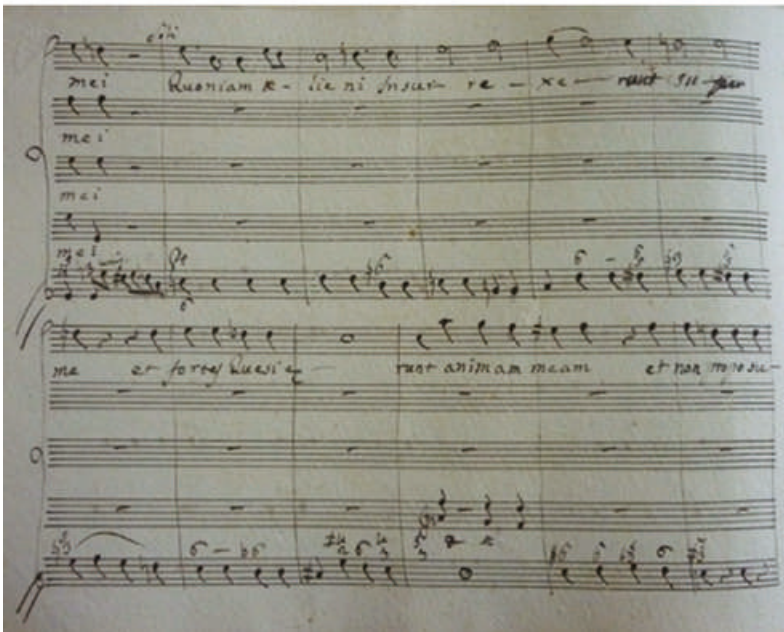 mei Quoniam a- lie ni Insur- re - xe - runt su - per
mei
mei
mei
me et fortes Quesie - runt animam meam et non proposue-